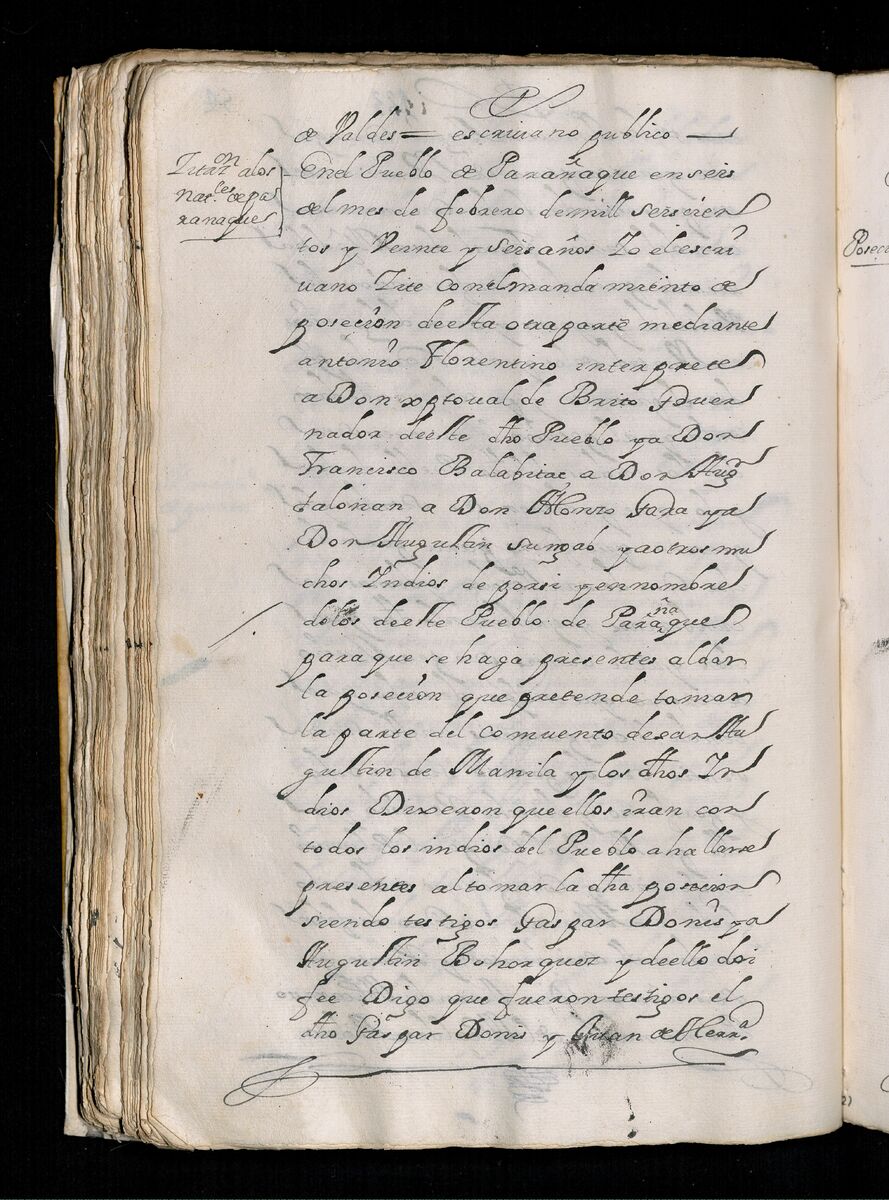 de Valdes = escriuano publico —
Zitaz.on alos
nat.les de pa
ranaque
Enel Pueblo de Parañaque en seis
del mes de febrero demill seiscien
tos y Veinte y seis años Yo el escri
uano Zite con el mandamiento de
poseción deesta otra parte mediante
antonio Florentino interprete
a Don xptoual de Brito Gouer
nador deeste dho Pueblo y a Don
Francisco Balabitac a Don Aug.n
talonan a Don Alonzo Gara y a
Don Augustin sungab y a otros mu
chos Yndios de por si y en nombre
delos deeste Pueblo de Parañaque
para que se haga presentes al dar
la poseción que pretende tomar
la parte del comuento de san Au
gustin de Manila y los dhos Yn
dios Dixeron que ellos iran con
todos los indios del Pueblo a hallarse
presentes al tomar la dha posecion
siendo testigos Gaspar Donis y a
Augustin Bohorquez y deello doi
fee Digo que fueron testigos el
dho Gaspar Donis y Juan de Herr.a
Posec